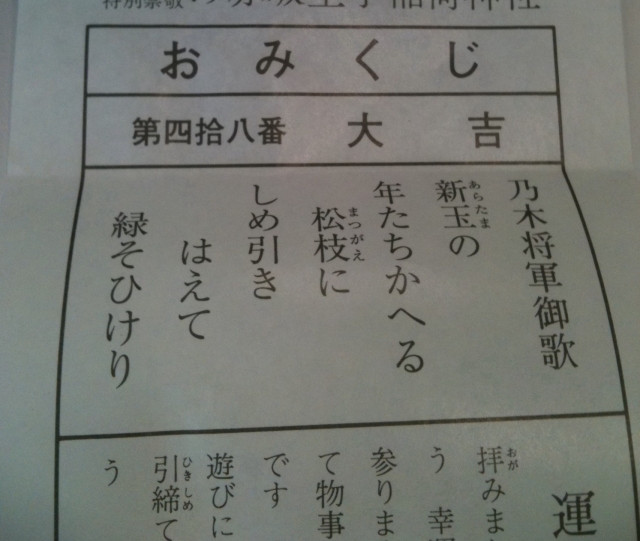 おみくじ
第四拾八番 大吉
乃木将軍御歌
新玉の
あらたま
年たちかへる
松枝に
まつがえ
しめ引き
はえて
緑そひけり
運
拝みま
おが
う 幸
参りま
て物事
です
遊びに
引締て
ひきしめ
う